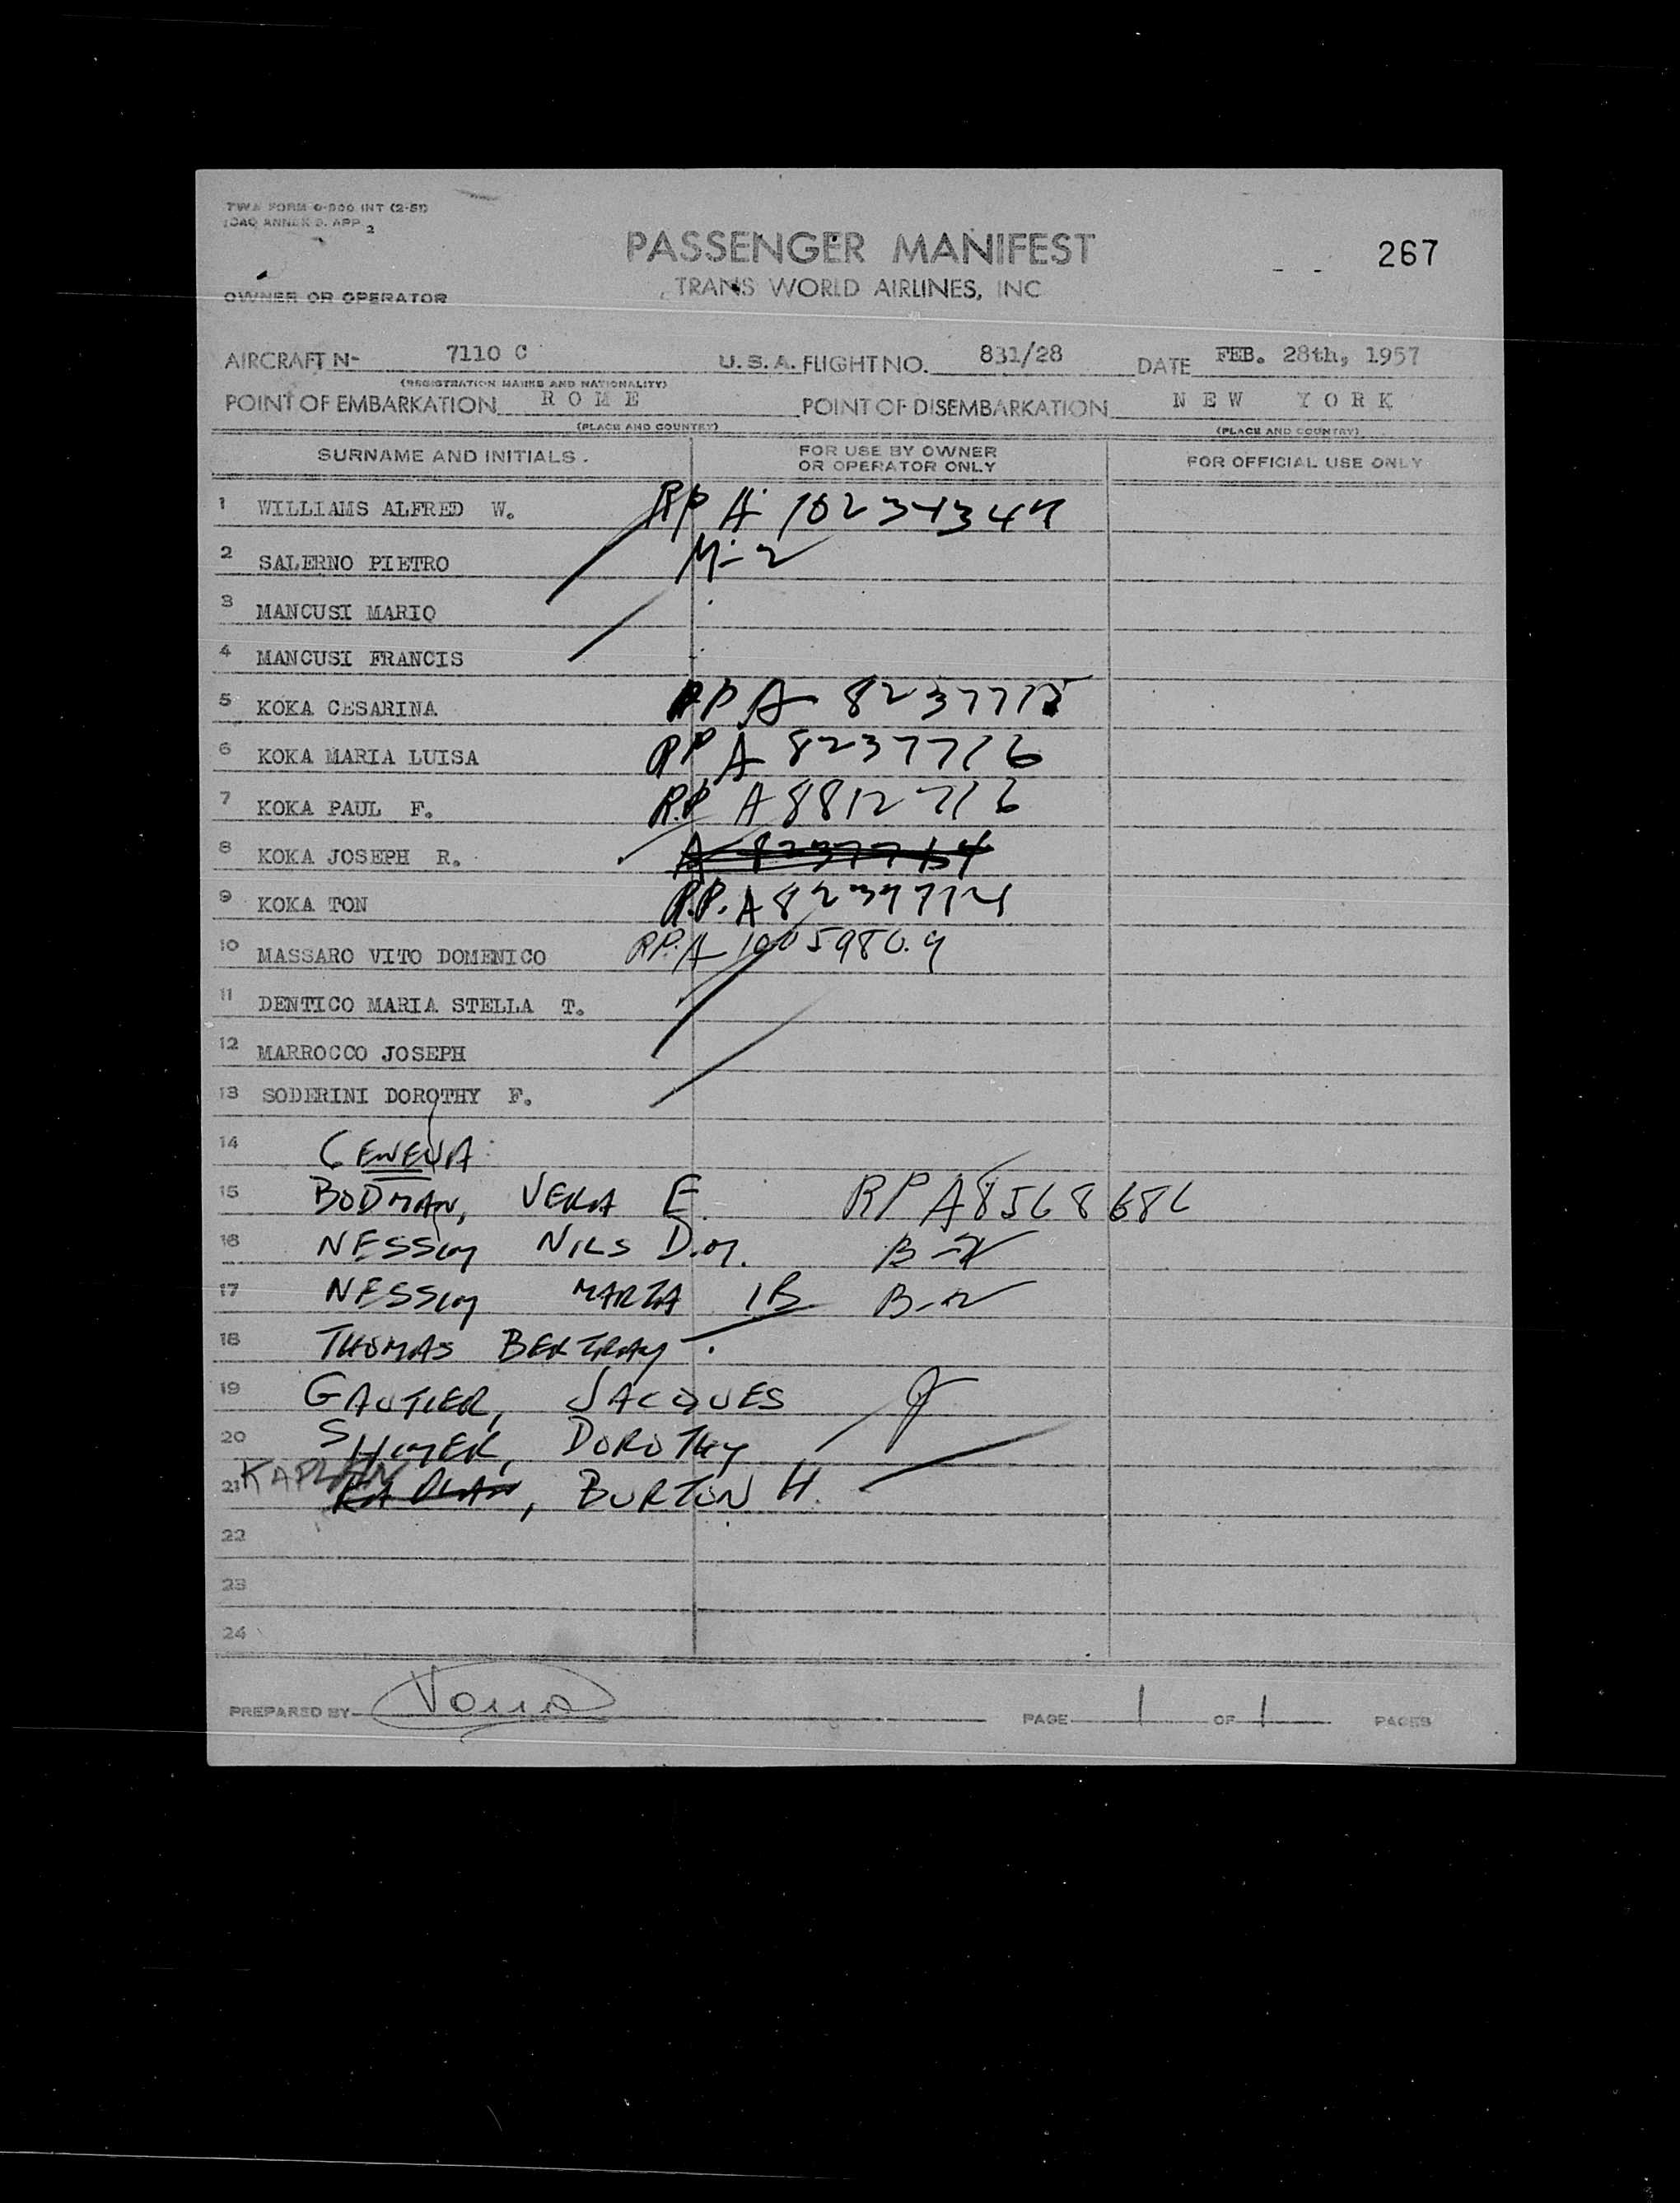 TWA FORM O-900 INT (2-51)
ICAO ANNEX 9. APP 2
PASSENGER MANIFEST
267
TRANS WORLD AIRLINES, INC
OWNER OR OPERATOR
AIRCRAFT N- 7110 C U.S.A. FLIGHT NO. 831/28 DATE FEB. 28th, 1957
(REGISTRATION MARKS AND NATIONALITY)
POINT OF EMBARKATION ROME POINT OF DISEMBARKATION NEW YORK
(PLACE AND COUNTRY) (PLACE AND COUNTRY)
SURNAME AND INITIALS. FOR USE BY OWNER OR OPERATOR ONLY FOR OFFICIAL USE ONLY
1 WILLIAMS ALFRED W. RP A
2 SALERNO PIETRO
3 MANCUSI MARIO
4 MANCUSI FRANCIS
5 KOKA CESARINA RP A 8237715
6 KOKA MARIA LUISA RP A 8237716
7 KOKA PAUL F. R.P. A 8812716
8 KOKA JOSEPH R.
9 KOKA TON R.P. A
10 MASSARO VITO DOMENICO RP. A
11 DENTICO MARIA STELLA T.
12 MARROCCO JOSEPH
13 SODERINI DOROTHY F.
14 GENEVA
15 BODMAN, VERA E. RP A8568686
16 NESSIM NILS D.M. B-2
17 NESSIM MARIA B B-2
18 THOMAS BERTRAM
19 GAUTIER, JACQUES
20 DOROTHY
21 KAPLAN, BURTON H.
22
23
24
PREPARED BY PAGE 1 OF 1 PAGES